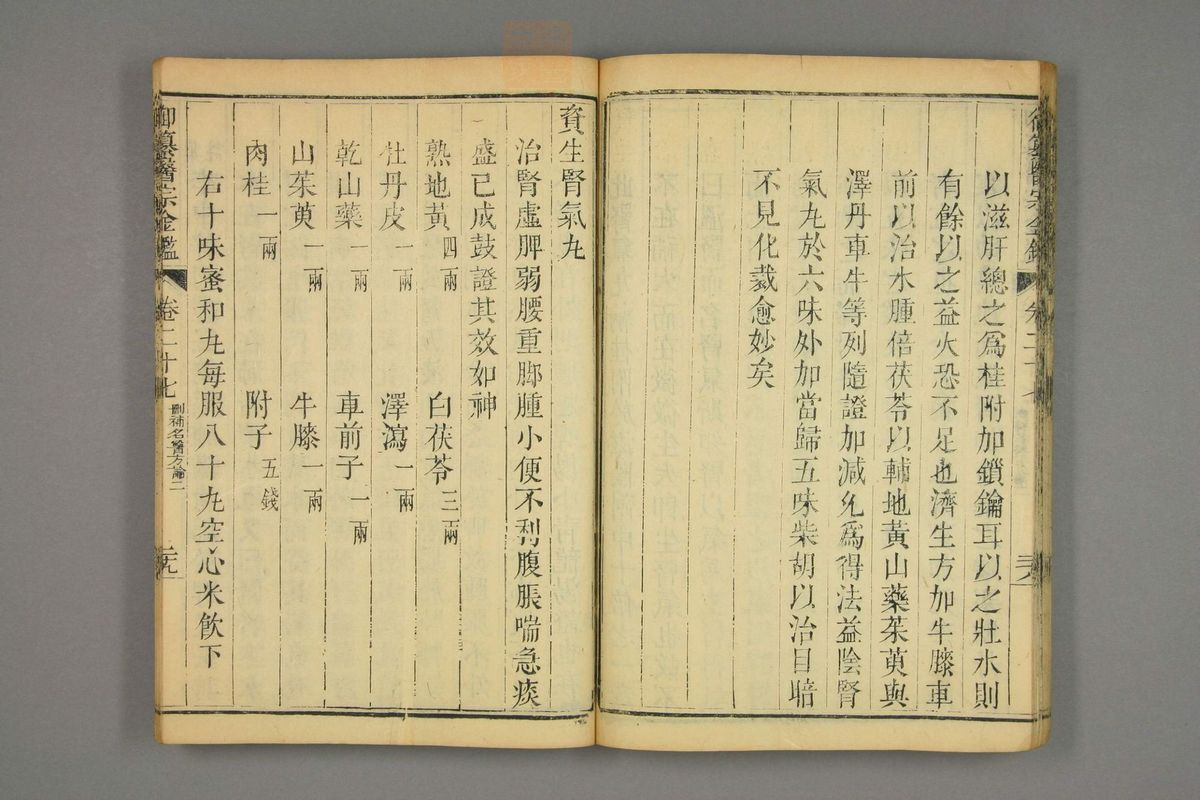 以滋肝總之爲桂附加鎖鑰耳以之壯水則
有餘以之益火恐不足也濟生方加牛膝車
前以治水腫倍茯苓以輔地黃山藥茱萸與
澤丹車牛等列隨證加減允爲得法益陰腎
氣丸於六味外加當歸五味柴胡以治目暗
不見化裁愈妙矣
資生腎氣丸
治腎虛脾弱腰重脚腫小便不利腹脹喘急痰
盛已成鼓證其效如神
熟地黃四兩 白茯苓三兩
牡丹皮一兩 澤瀉一兩
乾山藥一兩 車前子一兩
山茱萸一兩 牛膝一兩
肉桂一兩 附子五錢
右十味蜜和丸每服八十丸空心米飮下
御纂醫宗金鑑 卷二十七 刪補名醫方論二